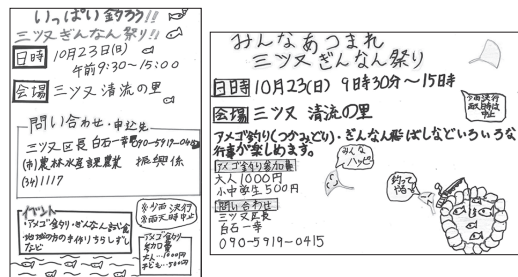 いっぱい釣ろう!!
三ツ又ぎんなん祭り!!
日時 10月23日(日)
午前9:30~15:00
会場 三ツ又 清流の里
問い合わせ・申込先
三ツ又区長 白石一幸 090-5919-04
(市)農林水産課農業 振興係
(34)1117
イベント
・アメゴ釣り・ぎんなん
地域の方の手作りちらしずし
など
※少雨決行
※雨天時中止
アメゴ釣り
参加費
大人…1000円
子ども…500円
みんなあつまれ
三ツ又ぎんなん祭り
日時 10月23日(日) 9時30分~15時
会場 三ツ又 清流の里
少雨決行
雨天時は
中止
アメゴ釣り(つかみどり)・ぎんなん飛ばしなどいろいろな
行事が楽しめます。
アメゴ釣り参加費
大人1000円
小中学生500円
問い合わせ
三ツ又区長
白石一幸
090-5919-0415
みんな
ハッピー
釣って